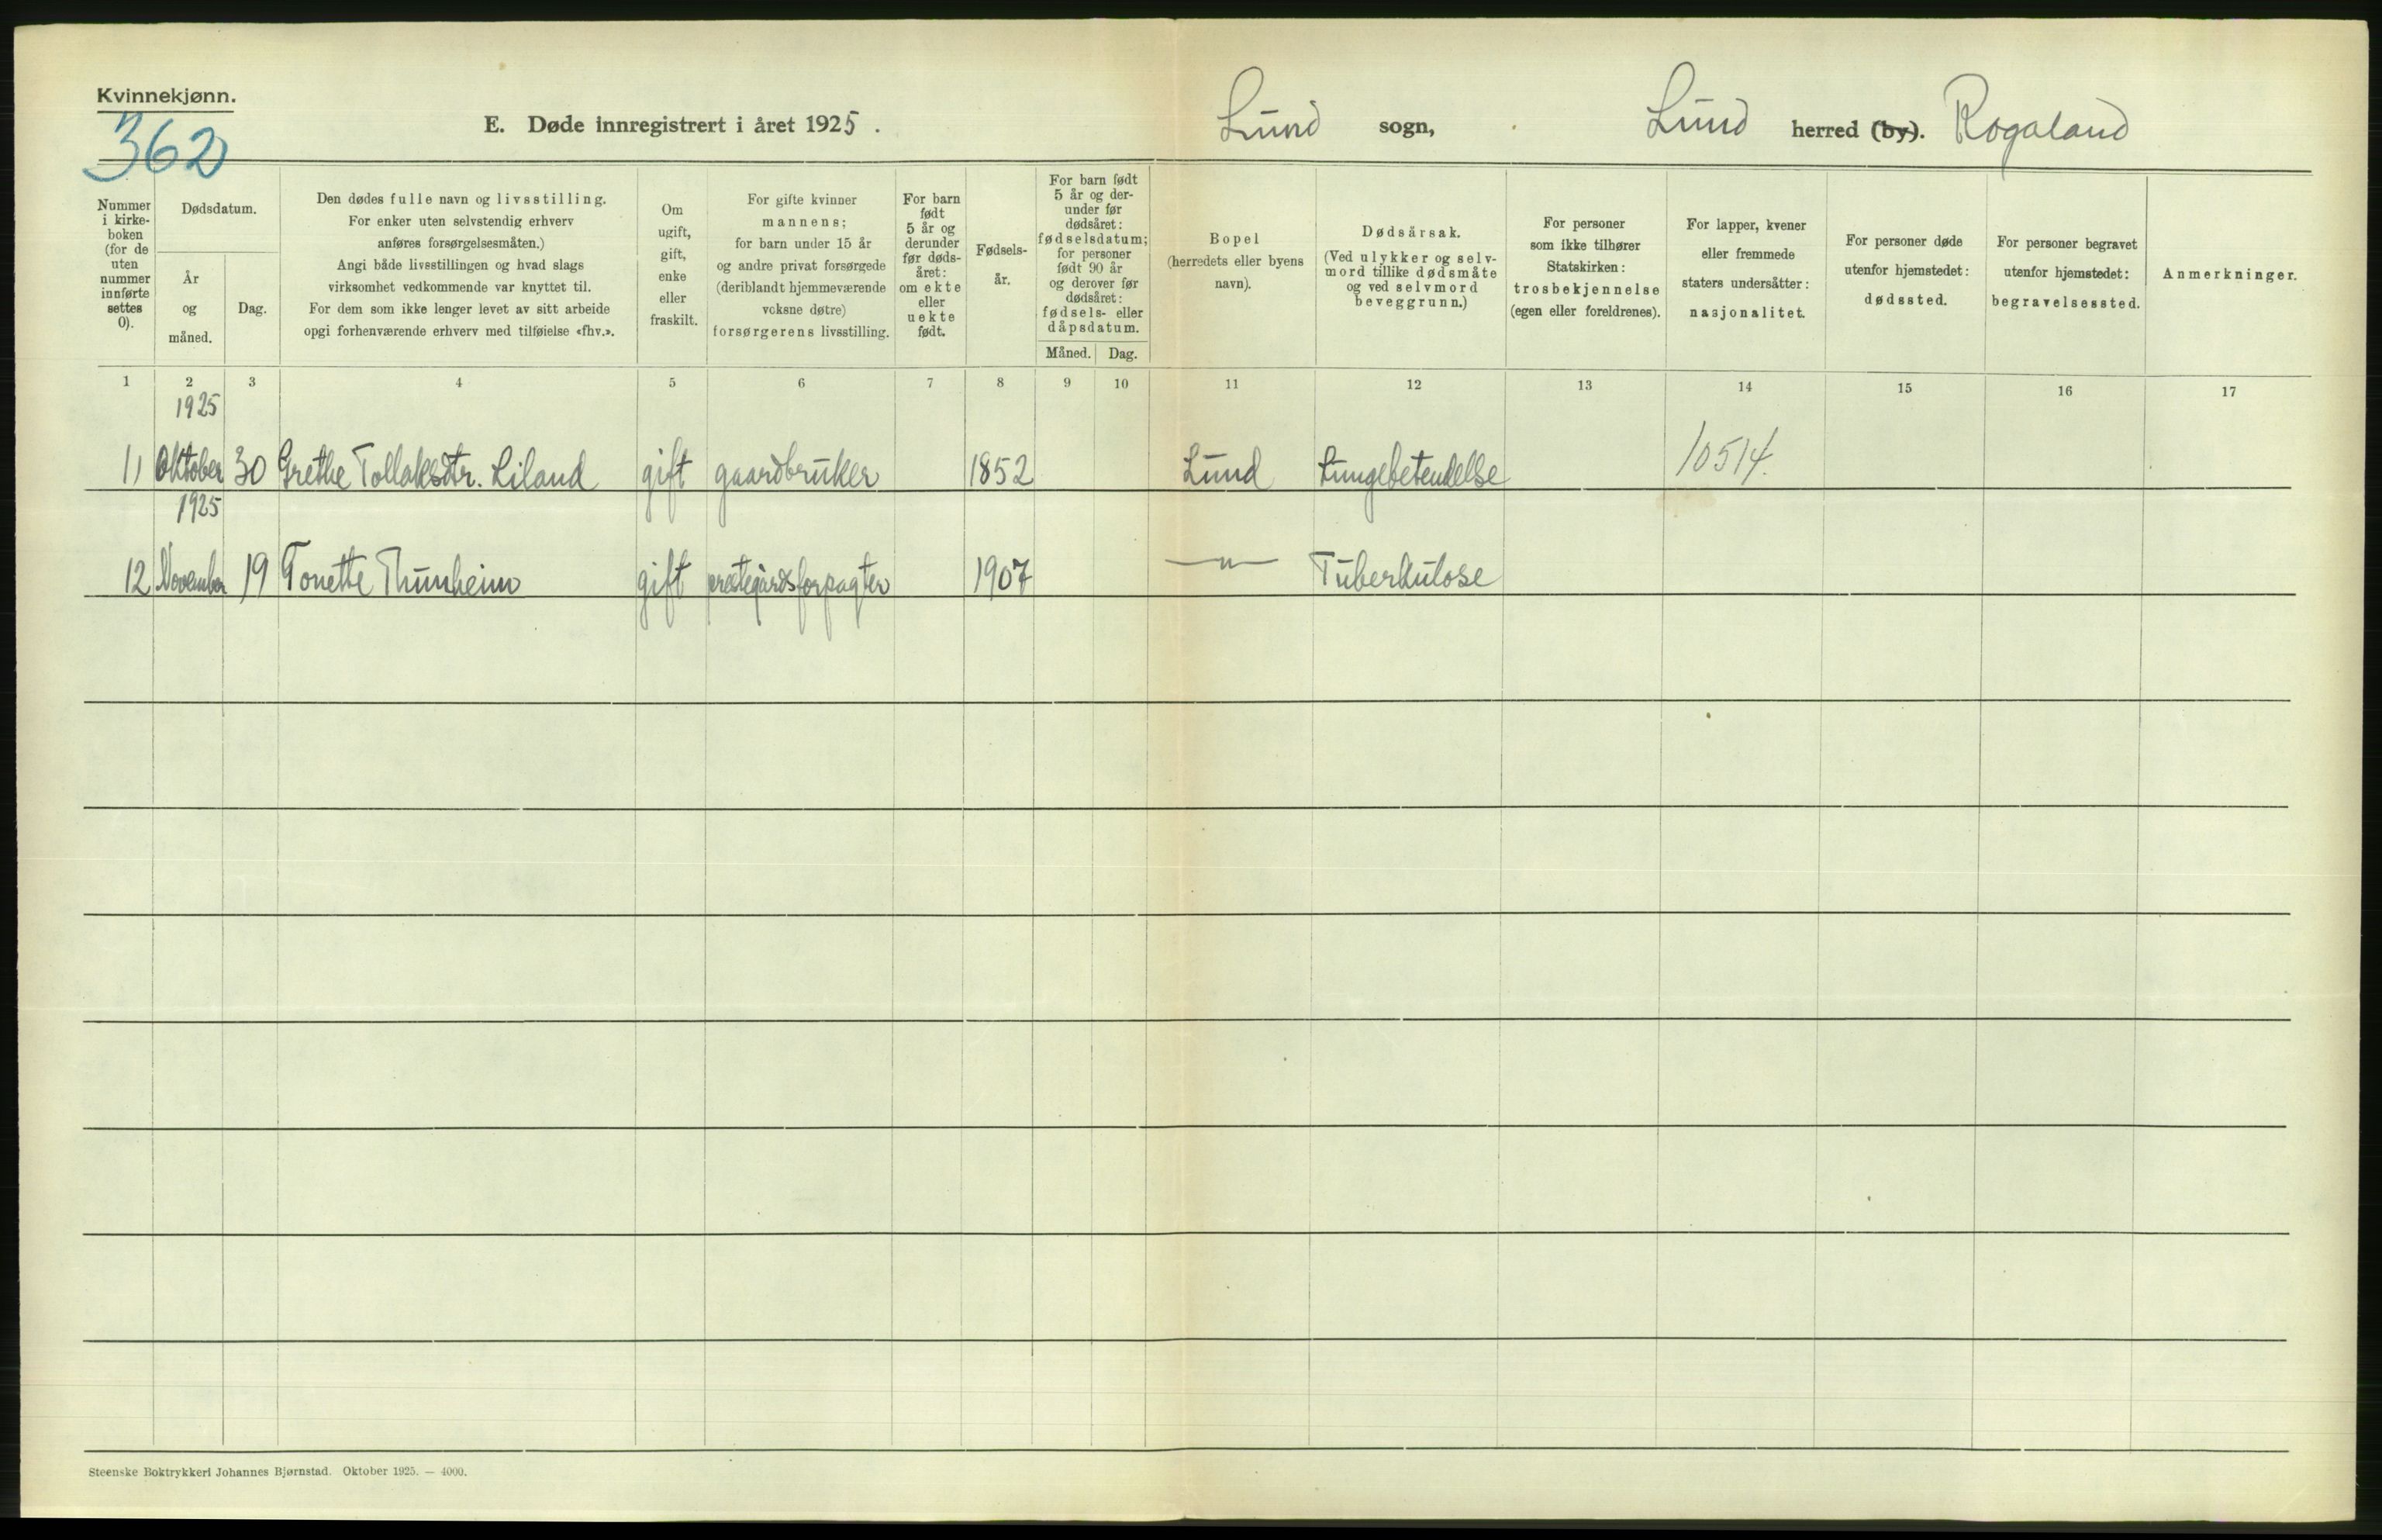 Kvinnekjønn.
362
E. Døde innregistrert i året 1925.
Lund sogn, Lund herred (by). Rogaland
Nummer
i kirke-
boken
(for de
uten
nummer
innførte
settes
0).
Dødsdatum.
År
og
måned.
Dag.
Den dødes fulle navn og livsstilling.
For enker uten selvstendig erhverv
anføres forsørgelsesmåten.)
Angi både livsstillingen og hvad slags
virksomhet vedkommende var knyttet til.
For dem som ikke lenger levet av sitt arbeide
opgi forhenværende erhverv med tilføielse «fhv.».
Om
ugift,
gift,
enke
eller
fraskilt.
For gifte kvinner
mannens;
for barn under 15 år
og andre privat forsørgede
(deriblandt hjemmeværende
voksne døtre)
forsørgerens livsstilling.
For barn
født
5 år og
derunder
før døds-
året:
om ekte
eller
uekte
født.
Fødsels-
år.
For barn født
5 år og der-
under før
dødsåret:
fødselsdatum;
for personer
født 90 år
og derover før
dødsåret:
fødsels- eller
dåpsdatum.
Måned. Dag.
Bopel
(herredets eller byens
navn).
Dødsårsak.
(Ved ulykker og selv-
mord tillike dødsmåte
og ved selvmord
beveggrunn.)
For personer
som ikke tilhører
Statskirken:
trosbekjennelse
(egen eller foreldrenes).
For lapper, kvener
eller fremmede
staters undersåtter:
nasjonalitet.
For personer døde
utenfor hjemstedet:
dødssted.
For personer begravet
utenfor hjemstedet:
begravelsessted.
Anmerkninger.
1 2 3 4 5 6 7 8 9 10 11 12 13 14 15 16 17
1925
11 Oktober 30 Grethe Tollaksdtr. Liland gift gaardbruker 1852 Lund Lungebetendelse 10514.
1925
12 November 19 Tonette Thunheim gift prestegårdsforpagter 1907 —„— Tuberkulose
Steenske Boktrykkeri Johannes Bjørnstad. Oktober 1925. — 4000.